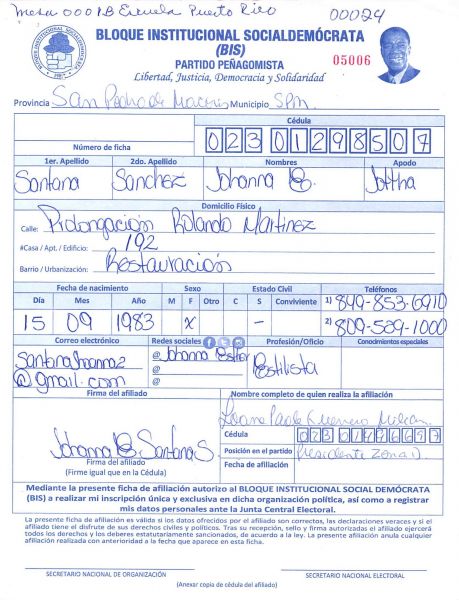 Mesa 0001B Escuela Puerto Rico
00024
BLOQUE INSTITUCIONAL SOCIALDEMÓCRATA
(BIS)
PARTIDO PEÑAGOMISTA
Libertad, Justicia, Democracia y Solidaridad
05006
Provincia San Pedro de Macoris Municipio SPM
Cédula
Número de ficha 02301298507
1er. Apellido 2do. Apellido Nombres Apodo
Santana Sanchez Johanna E.
Domicilio Físico
Calle: Prolongacion Rolando Martinez
#Casa / Apt. / Edificio: 192
Barrio / Urbanización: Restauración
Fecha de nacimiento Sexo Estado Civil Teléfonos
Día Mes Año M F Otro C S Conviviente 1) 849-853-6910
15 09 1983 x – 2) 809-509-1000
Correo electrónico Redes sociales Profesión/Oficio Conocimientos especiales
@Johanna Esther
@gmail.com @
@
Firma del afiliado Nombre completo de quien realiza la afiliación
Cédula
Johanna E Santana S. Posición en el partido Presidente Zona D.
Firma del afiliado Fecha de afiliación
(Firme igual que en la Cédula)
Mediante la presente ficha de afiliación autorizo al BLOQUE INSTITUCIONAL SOCIAL DEMÓCRATA
(BIS) a realizar mi inscripción única y exclusiva en dicha organización política, así como a registrar
mis datos personales ante la Junta Central Electoral.
La presente ficha de afiliación es válida si los datos ofrecidos por el afiliado son correctos, las declaraciones veraces y si el
afiliado tiene el disfrute de sus derechos civiles y políticos. Tras su recepción, sello y firma autorizadas el afiliado ejercerá
todos los derechos y los deberes estatutariamente sancionados, de acuerdo a la ley. La presente afiliación anula cualquier
afiliación realizada con anterioridad a la fecha que aparece en esta ficha.
SECRETARIO NACIONAL DE ORGANIZACIÓN SECRETARIO NACIONAL ELECTORAL
(Anexar copia de cédula del afiliado)